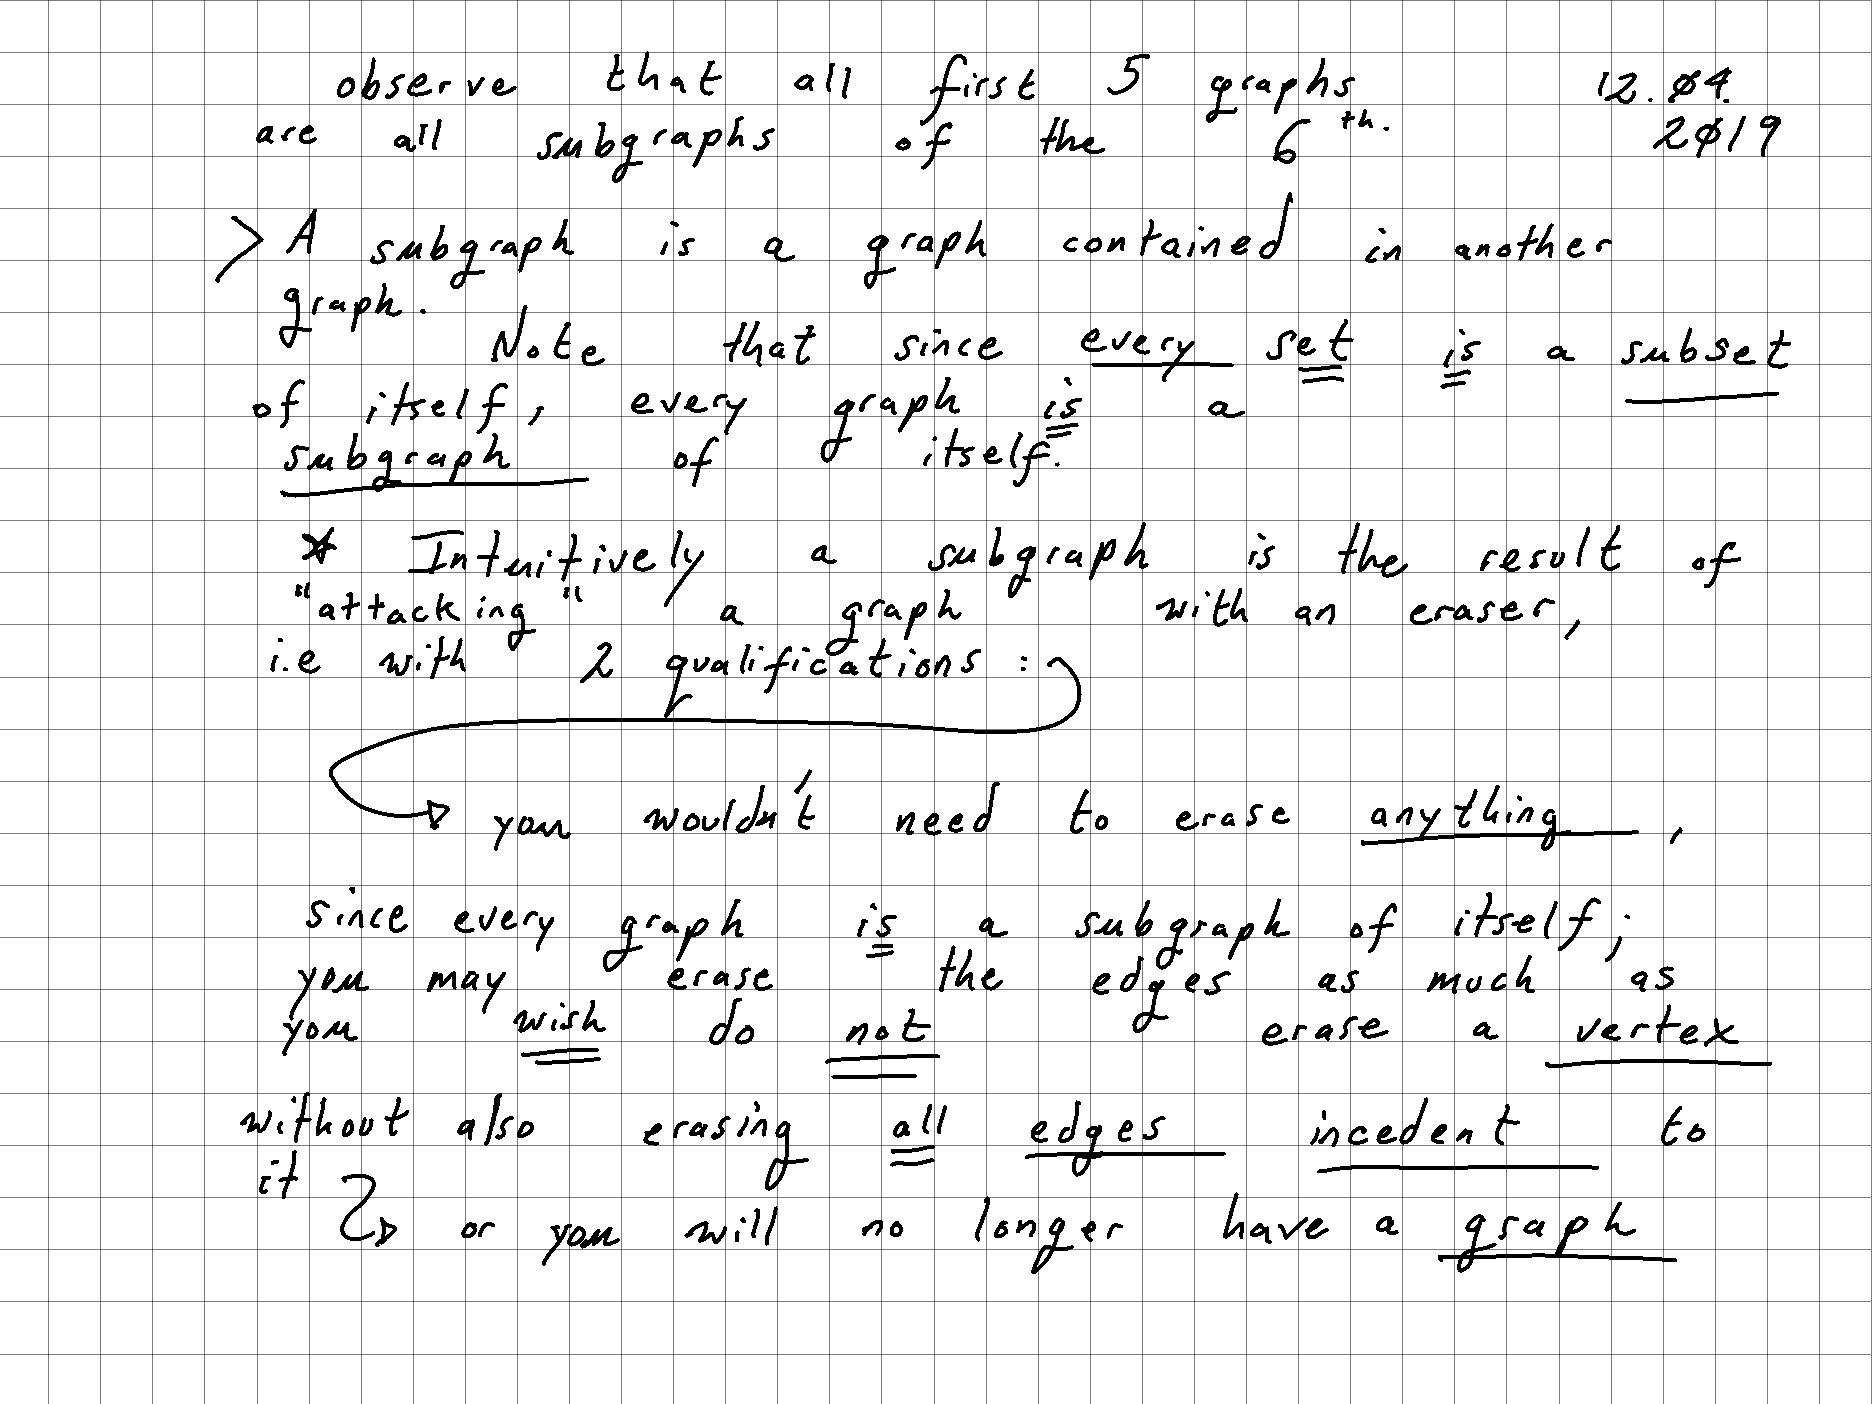 observe that all first 5 graphs 12.04.
are all subgraphs of the 6th. 2019
> A subgraph is a graph contained in another
graph.
Note that since every set is a subset
of itself, every graph is a
subgraph of itself.
* Intuitively a subgraph is the result of
"attacking" a graph with an eraser,
i.e with 2 qualifications :
you wouldn't need to erase anything ,
since every graph is a subgraph of itself;
you may erase the edges as much as
you wish do not erase a vertex
without also erasing all edges incedent to
it
or you will no longer have a graph